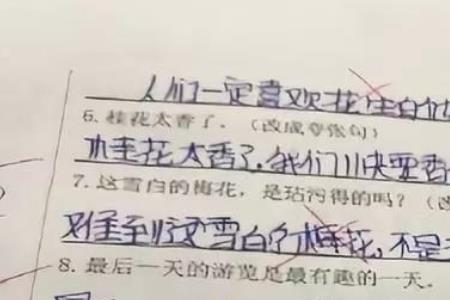 人们一定喜欢花
6. 桂花太香了。（改成夸张句）
桂花太香了,我们川快要香
7. 这雪白的梅花，是玷污得的吗？（改
雪白的梅花,不是
8. 最后一天的游览是最有趣的一天。